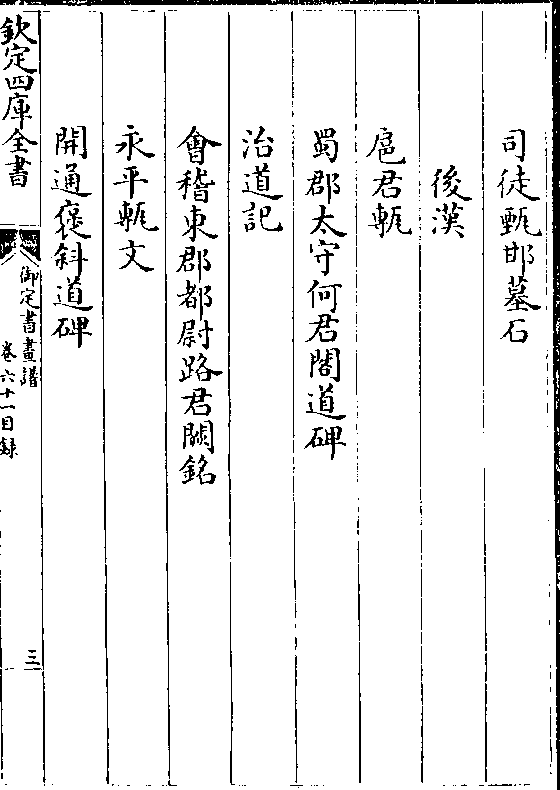 司徒甄邯墓石
後漢
扈君甎
蜀郡太守何君閣道碑
治道記
會稽東郡都尉路君闕銘
永平甎文
開通褒斜道碑
欽定四庫全書
御定書畫譜
卷六十一目録
三